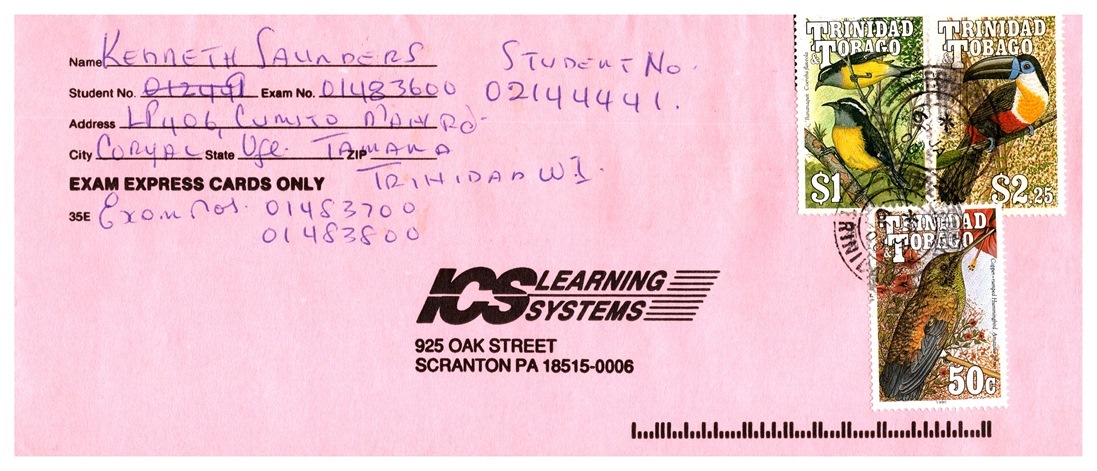 Name KENNETH SAUNDERS
Student No. 012491 Exam No. 01483600
STUDENT NO.
02144441.
Address LP406, CUMUTO MAIN RD.
City CORYAL State Vge. TAMANA ZIP
TRINIDAD WI.
EXAM EXPRESS CARDS ONLY
35E Exam Nos. 01483700
01483800
TRINIDAD
& TOBAGO
Bananaquit Coereba flaveola
$1
TRINIDAD
& TOBAGO
$2.25
TRINIDAD
& TOBAGO
Copper-rumped Hummingbird
50c
1990
ICS LEARNING
SYSTEMS
925 OAK STREET
SCRANTON PA 18515-0006